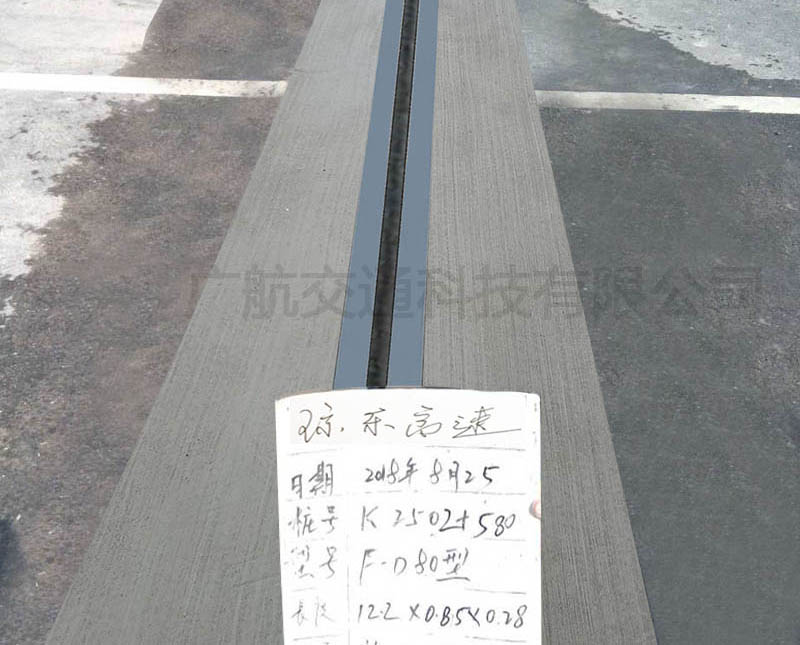 广航交通科技有限公司
琼.乐高速
日期 2018年8月25
桩号 K2502+580
型号 F-D80型
長度 12.2×0.85×0.28